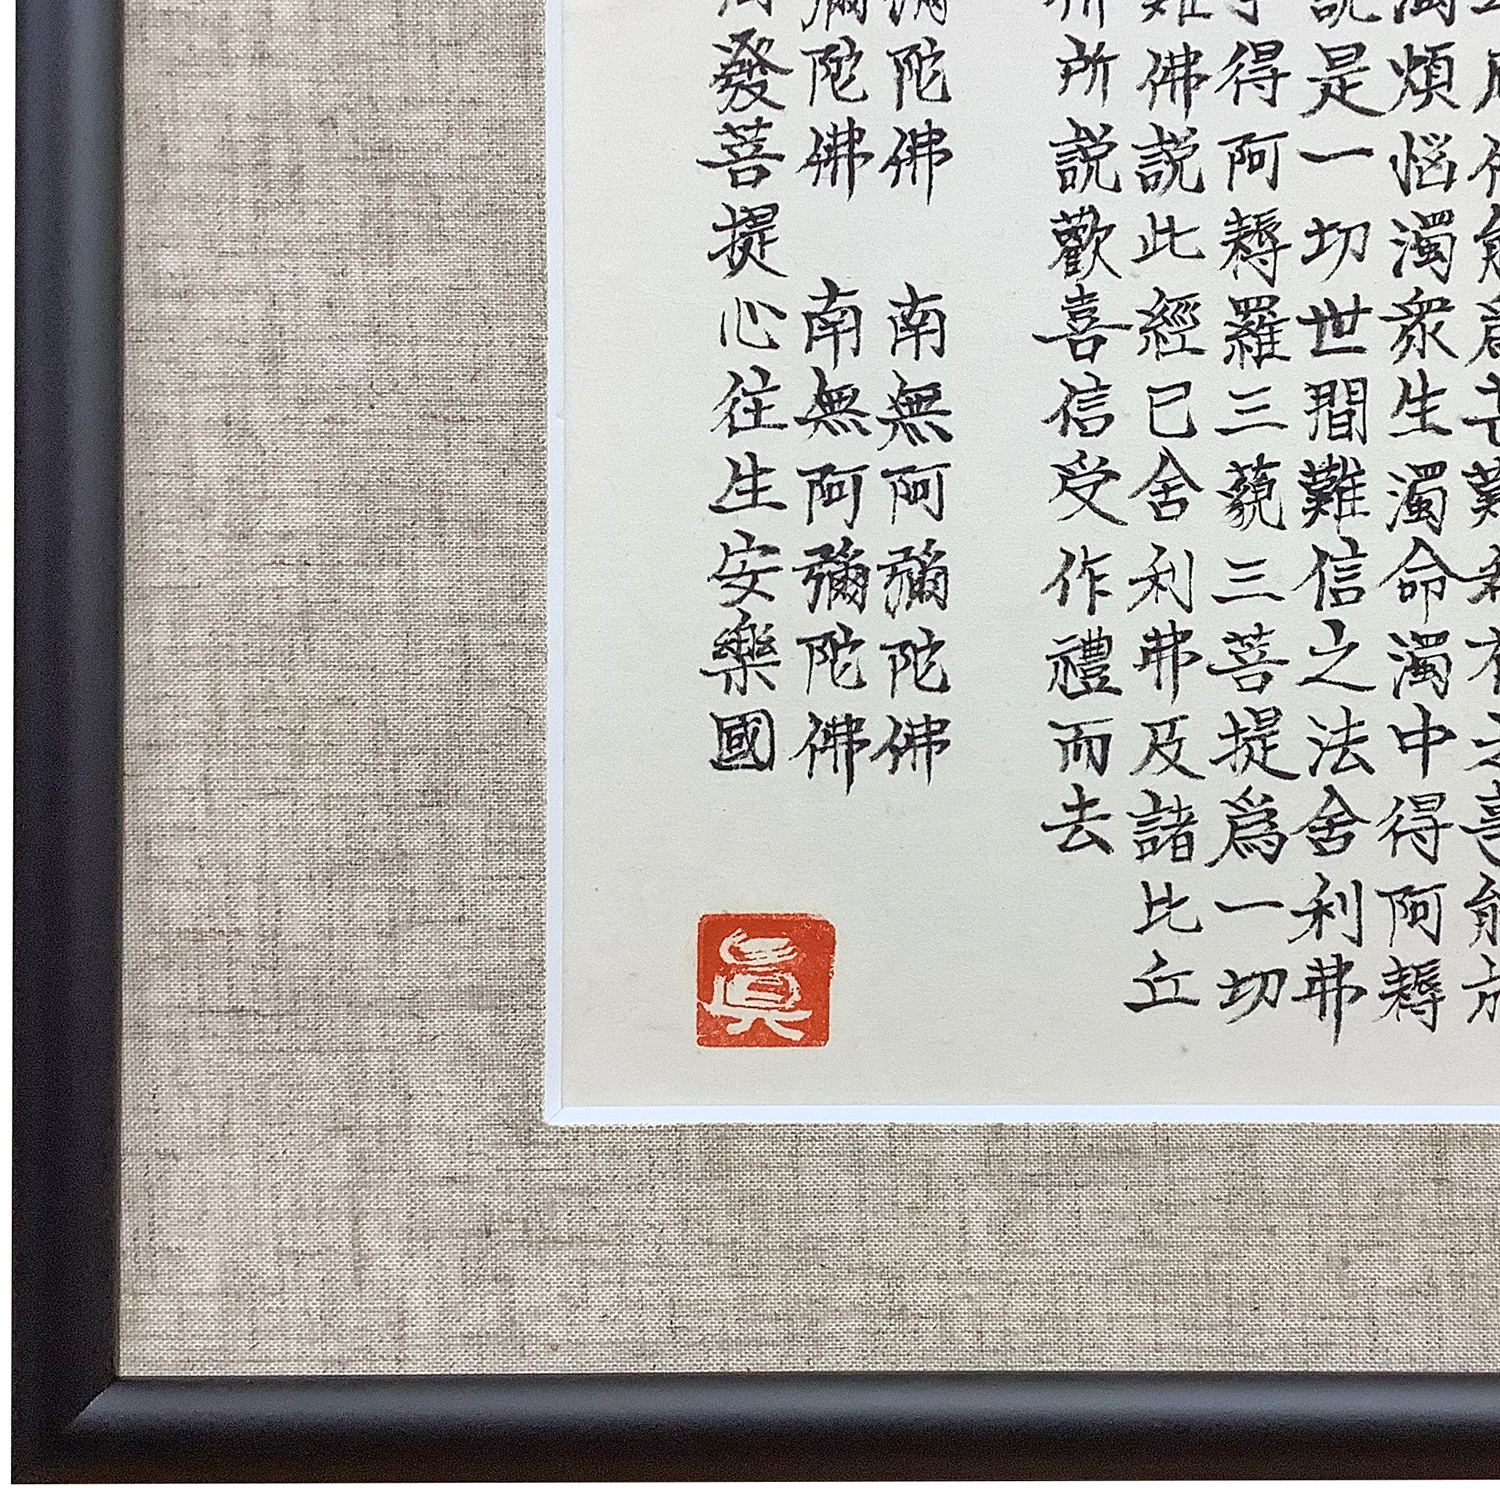 濁煩惱濁衆生濁命濁中得阿耨
説是一切世間難信之法舍利弗
得阿耨羅三藐三菩提爲一切
難佛説此經已舍利弗及諸比丘
所説歡喜信受作禮而去
彌陀佛 南無阿彌陀佛
彌陀佛 南無阿彌陀佛
發菩提心往生安樂國
眞